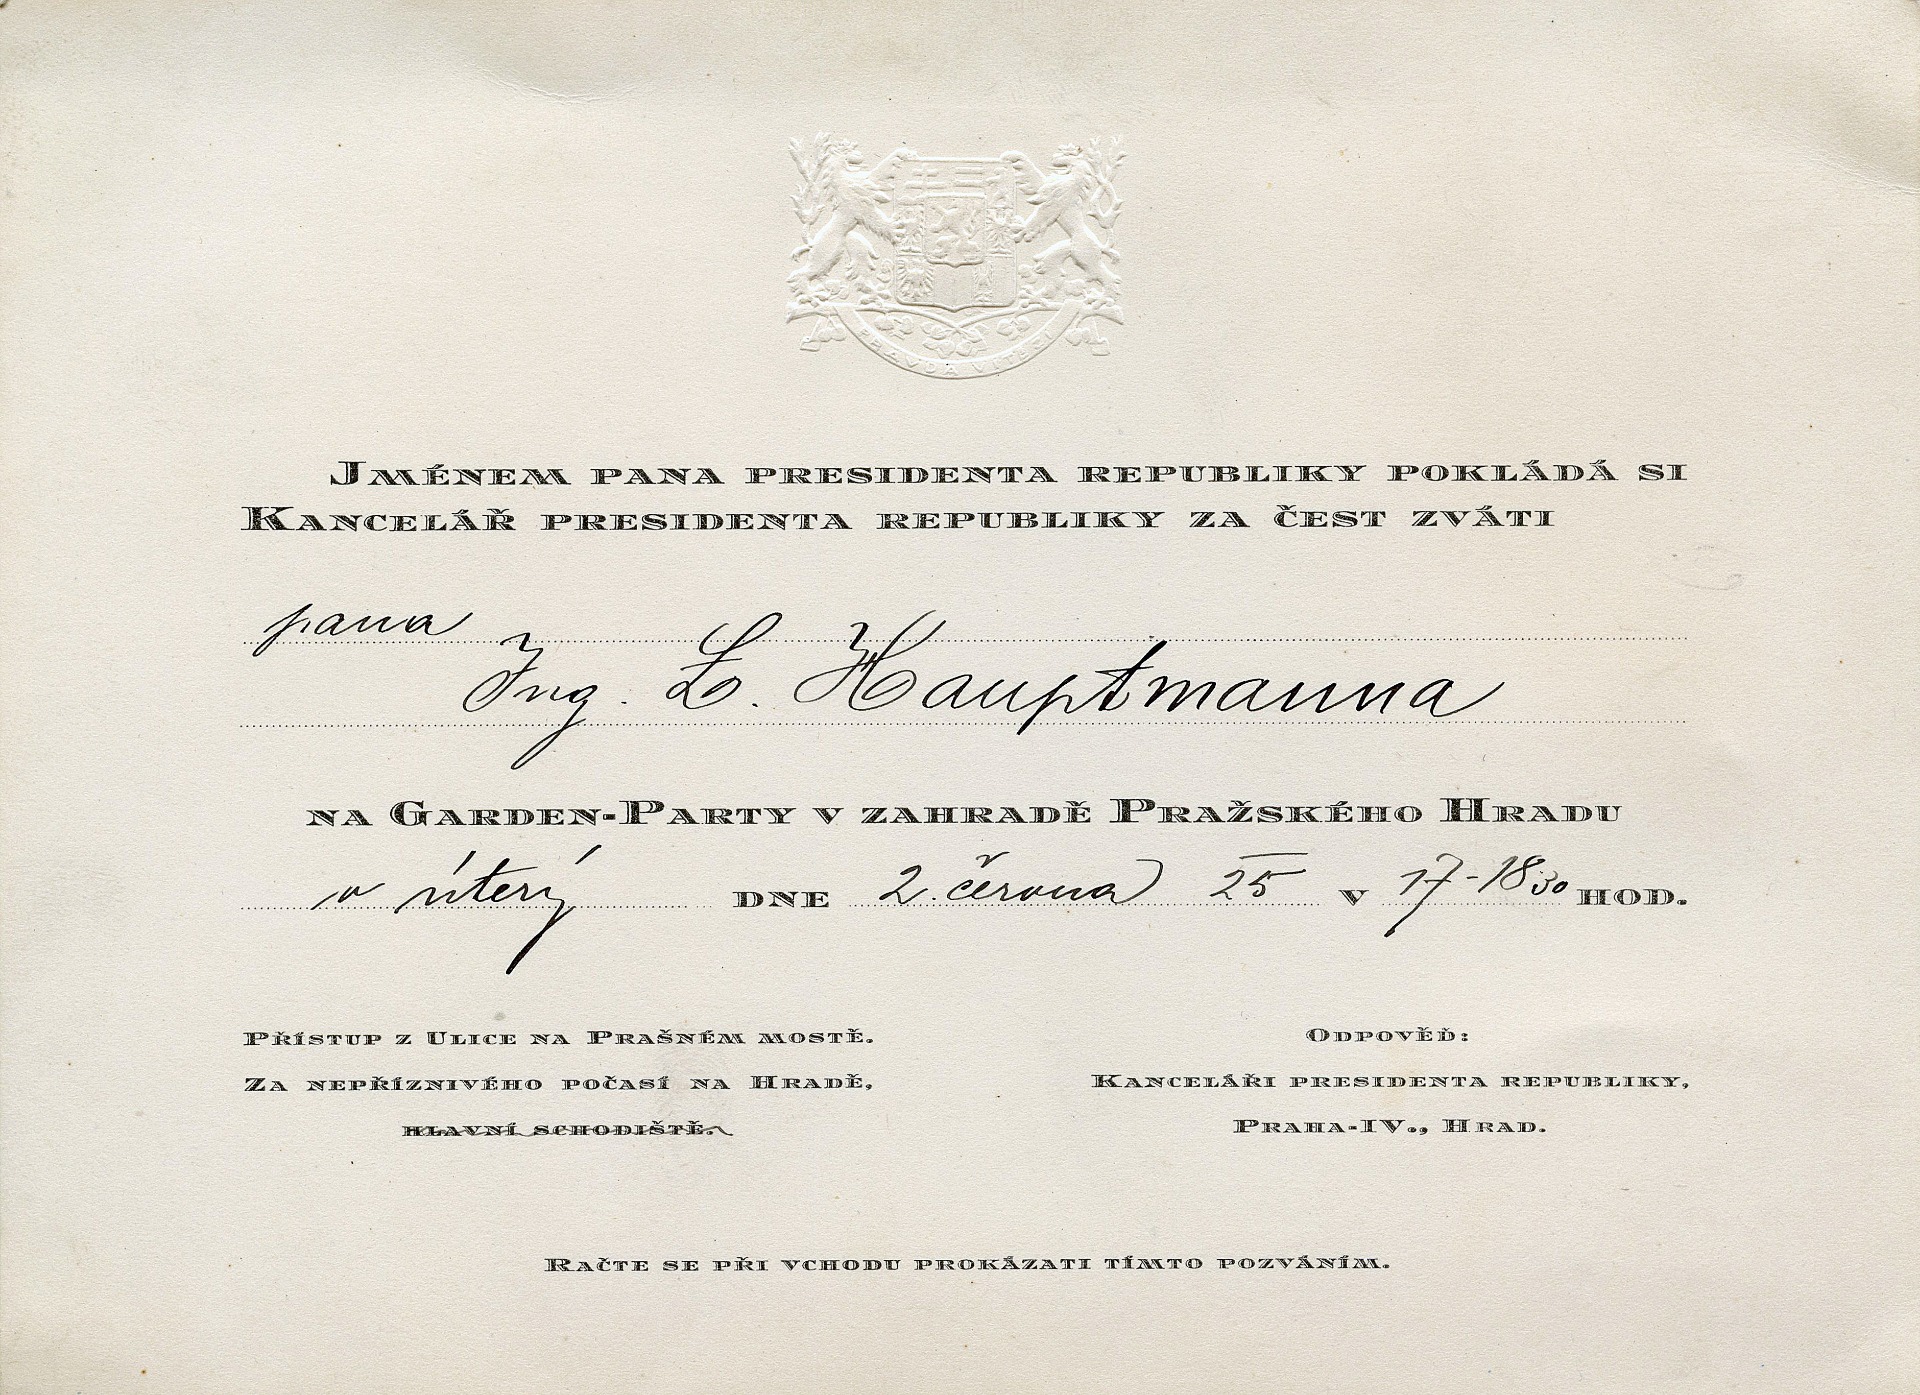 PRAVDA VÍTĚZÍ
Jménem pana presidenta republiky pokládá si
Kancelář presidenta republiky za čest zváti
pana
Ing. L. Hauptmanna
na Garden-Party v zahradě Pražského Hradu
v úterý dne 2. června 25 v 17-18 30 hod.
Přístup z Ulice na Prašném mostě.
Za nepříznivého počasí na Hradě,
hlavní schodiště.
Odpověď:
Kanceláři presidenta republiky,
Praha-IV., Hrad.
Račte se při vchodu prokázati tímto pozváním.